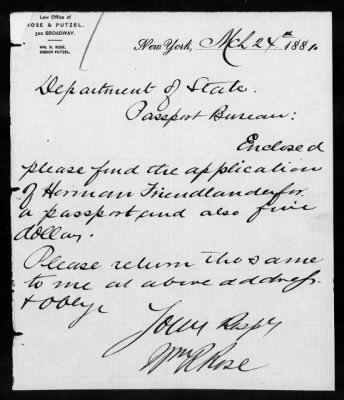 Law Office of
ROSE & PUTZEL,
320 BROADWAY.
WM. R. ROSE.
GIBSON PUTZEL.
New York, Mch 24th 188
Department of State.
Passport Bureau:
Enclosed
please find the application
of Herman Friendlander for
a passport and also five
dollars.
Please return the same
to me at above address.
& oblige
Yours Respy
Wm R Rose